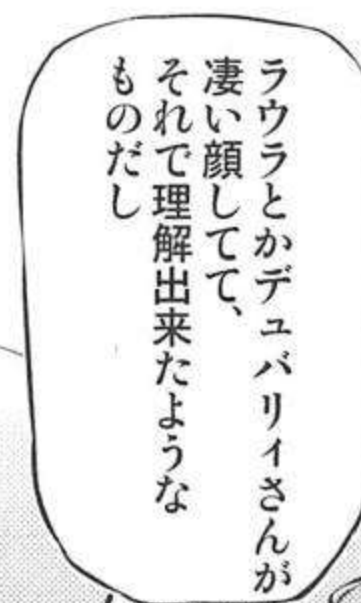 ラウラとかデュバリィさんが
凄い顔してて、
それで理解出来たような
ものだし